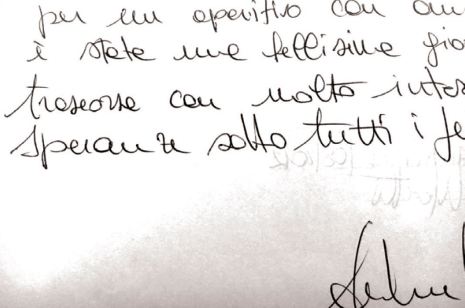 per un aperitivo con am
è state une bellissima gio
trascorsa con molto inter
speranze sotto tutti i